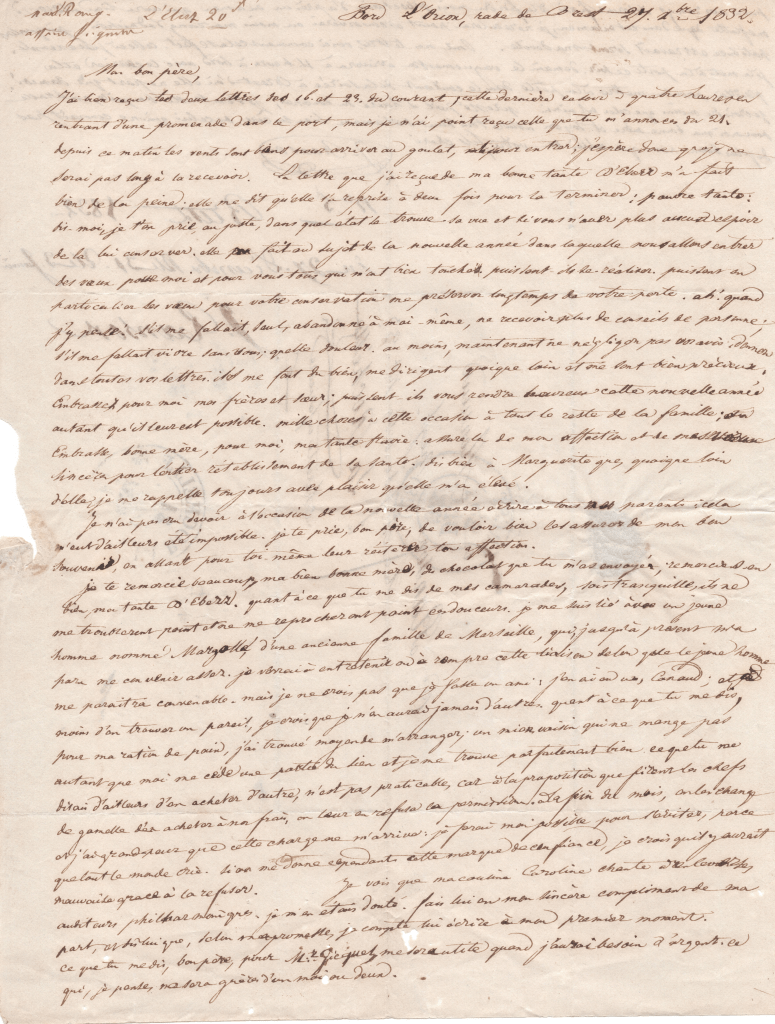 Bord L'Orion, rade de Brest 27. xbre 1832.
Mon bon père,
J'ai bien reçu tes deux lettres des 16. et 23. du courant, cette dernière ce soir à quatre heures en
rentrant d'une promenade dans le port, mais je n'ai point reçu celle que tu m'annonces du 21.
depuis ce matin les vents sont bons pour arriver au goulet, et pour entrer; j'espère donc que je ne
serai pas long à la recevoir. La lettre que j'ai reçue de ma bonne tante D'Eberz m'a fait
bien de la peine: elle me dit qu'elle l'a reprise à deux fois pour la terminer; pauvre tante:
dis-moi, je t'en prie, au juste, dans quel état se trouve sa vue et si vous n'avez plus aucun espoir
de la lui conserver. elle fait au sujet de la nouvelle année dans laquelle nous allons entrer
des vœux pour moi et pour vous tous qui m'ont bien touché. puissent-ils se réaliser. puissent en
particulier les vœux pour votre conservation me préserver longtemps de votre perte. ah! quand
j'y pense. s'il me fallait, seul, abandonné à moi-même, ne recevoir plus de conseils de personne;
s'il me fallait vivre sans vous; quelle douleur. au moins, maintenant ne négligez pas vos avis. donnez
dans toutes vos lettres. ils me font du bien, me dirigent quoique loin et me sont bien précieux.
Embrassez pour moi mes frères et sœur; puissent-ils vous rendre heureux cette nouvelle année
autant qu'il leur est possible. mille choses à cette occasion à tout le reste de la famille;
Embrasse, bonne mère, pour moi, ma tante flavie: assure la de mon affection et de mes vœux
sincères pour l'entier rétablissement de sa santé. dis bien à Marguerite que, quoique loin
d'elle, je me rappelle toujours avec plaisir qu'elle m'a élevé.
Je n'ai pas cru devoir à l'occasion de la nouvelle année écrire à tous nos parents; cela
m'eut d'ailleurs été impossible. je te prie, bon père, de vouloir bien les assurer de mon bon
souvenir, en allant pour toi-même leur réitérer ton affection.
je te remercie beaucoup, ma bien bonne mère, de chocolat que tu m'as envoyé; remercies en
bien ma tante D'Eberz. quant à ce que tu me dis de mes camarades, sois tranquille, ils ne
me troubleront point et ne me reprocheront point ces douceurs. je me suis lié avec un jeune
homme nommé Margollé d'une ancienne famille de Marseille, qui, jusqu'à présent m'a
paru me convenir assez. je verrai à entretenir ou à rompre cette liaison selon que le jeune homme
me paraîtra convenable. mais je ne crois pas que je fasse un ami; j'en ai eu un, Canaud; et à
moins d'en trouver un pareil, je crois que je n'en aurai jamais d'autre. quant à ce que tu me dis,
pour ma ration de pain, j'ai trouvé moyen de m'arranger; un mien voisin qui ne mange pas
autant que moi me cède une partie du sien et je me trouve parfaitement bien. ce que tu me
disais d'ailleurs d'en acheter d'autre, n'est pas praticable, car à la proposition que firent les chefs
de gamelle d'en acheter à nos frais, on leur en refusa la permission. à la fin du mois, on les change
et j'ai grand peur que cette charge ne m'arrive: je ferai mon possible pour l'éviter, parce
que tout le monde crie. si on me donne cependant cette marque de confiance, je crois qu'il y aurait
mauvaise grace à la refuser. Je vois que ma cousine Caroline chante
auditeurs philharmoniques. je m'en étais douté. fais lui en mon sincère compliment de ma
part, et dis lui que, selon ma promesse, je compte lui écrire à mon premier moment.
ce que tu me dis, bon père, pour Mr. Gicquel, me sera utile quand j'aurai besoin d'argent. ce
qui, je pense, ne sera guère d'un mois ou deux.